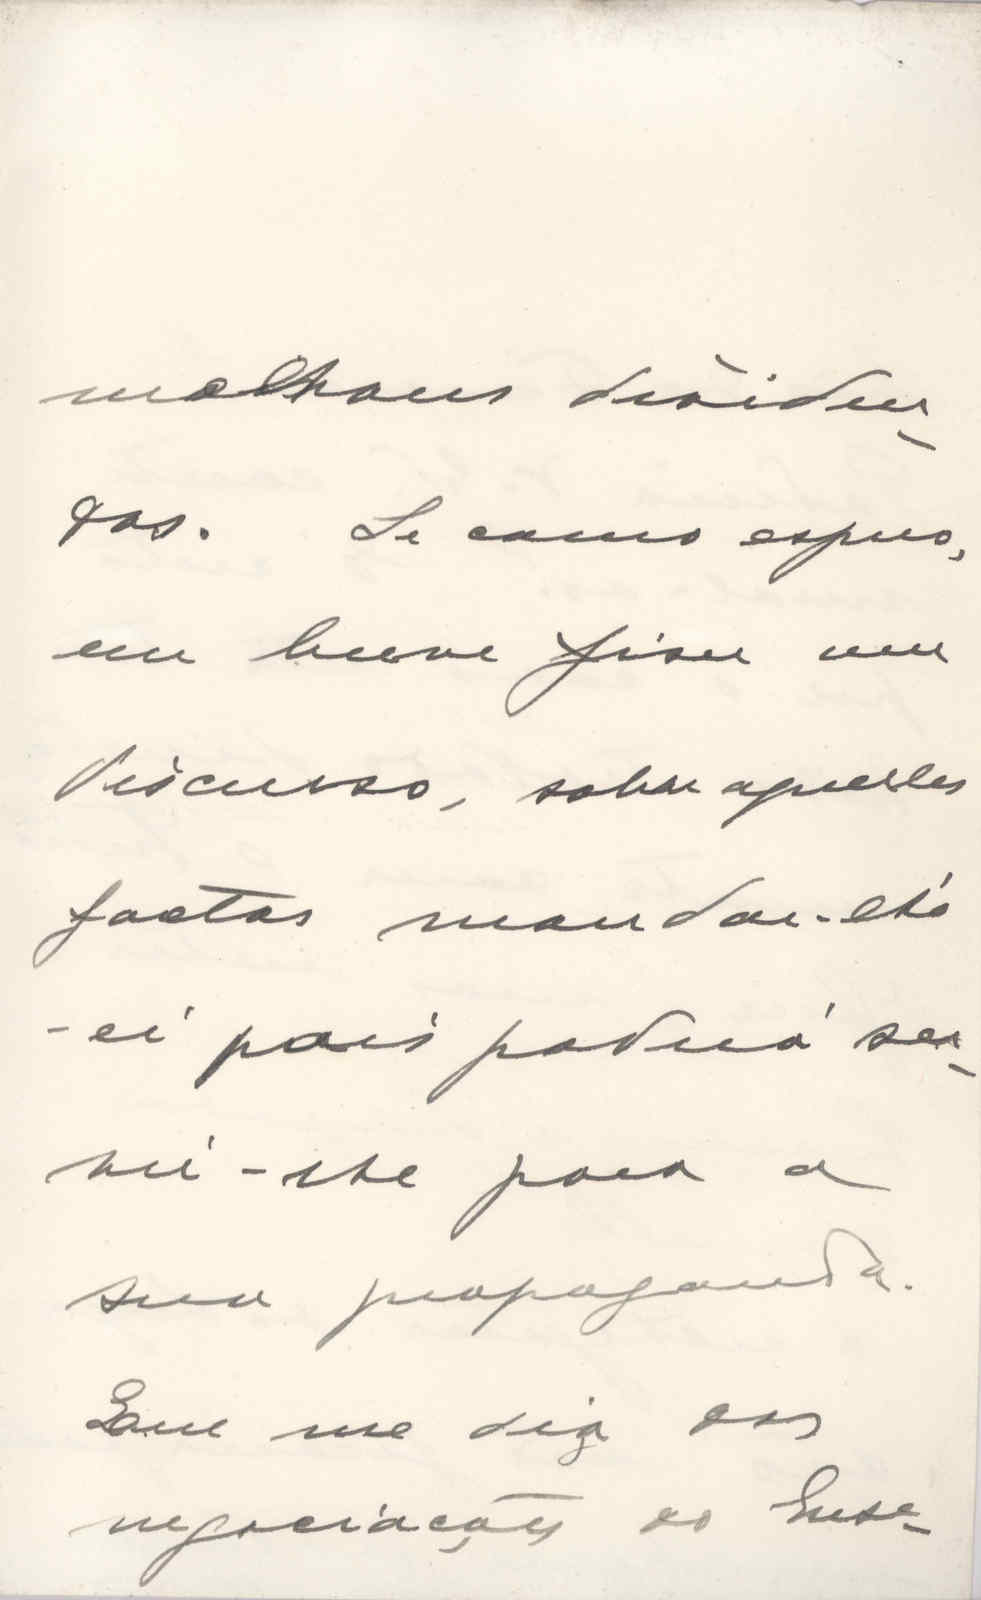 melhores dividen-
dos. Se como espero,
em breve fizer um
discurso, sobre aquelles
factos mandar-lhó
-ei pois poderá ser-
vir-lhe para a
sua propaganda.
Que me diz das
negociações do